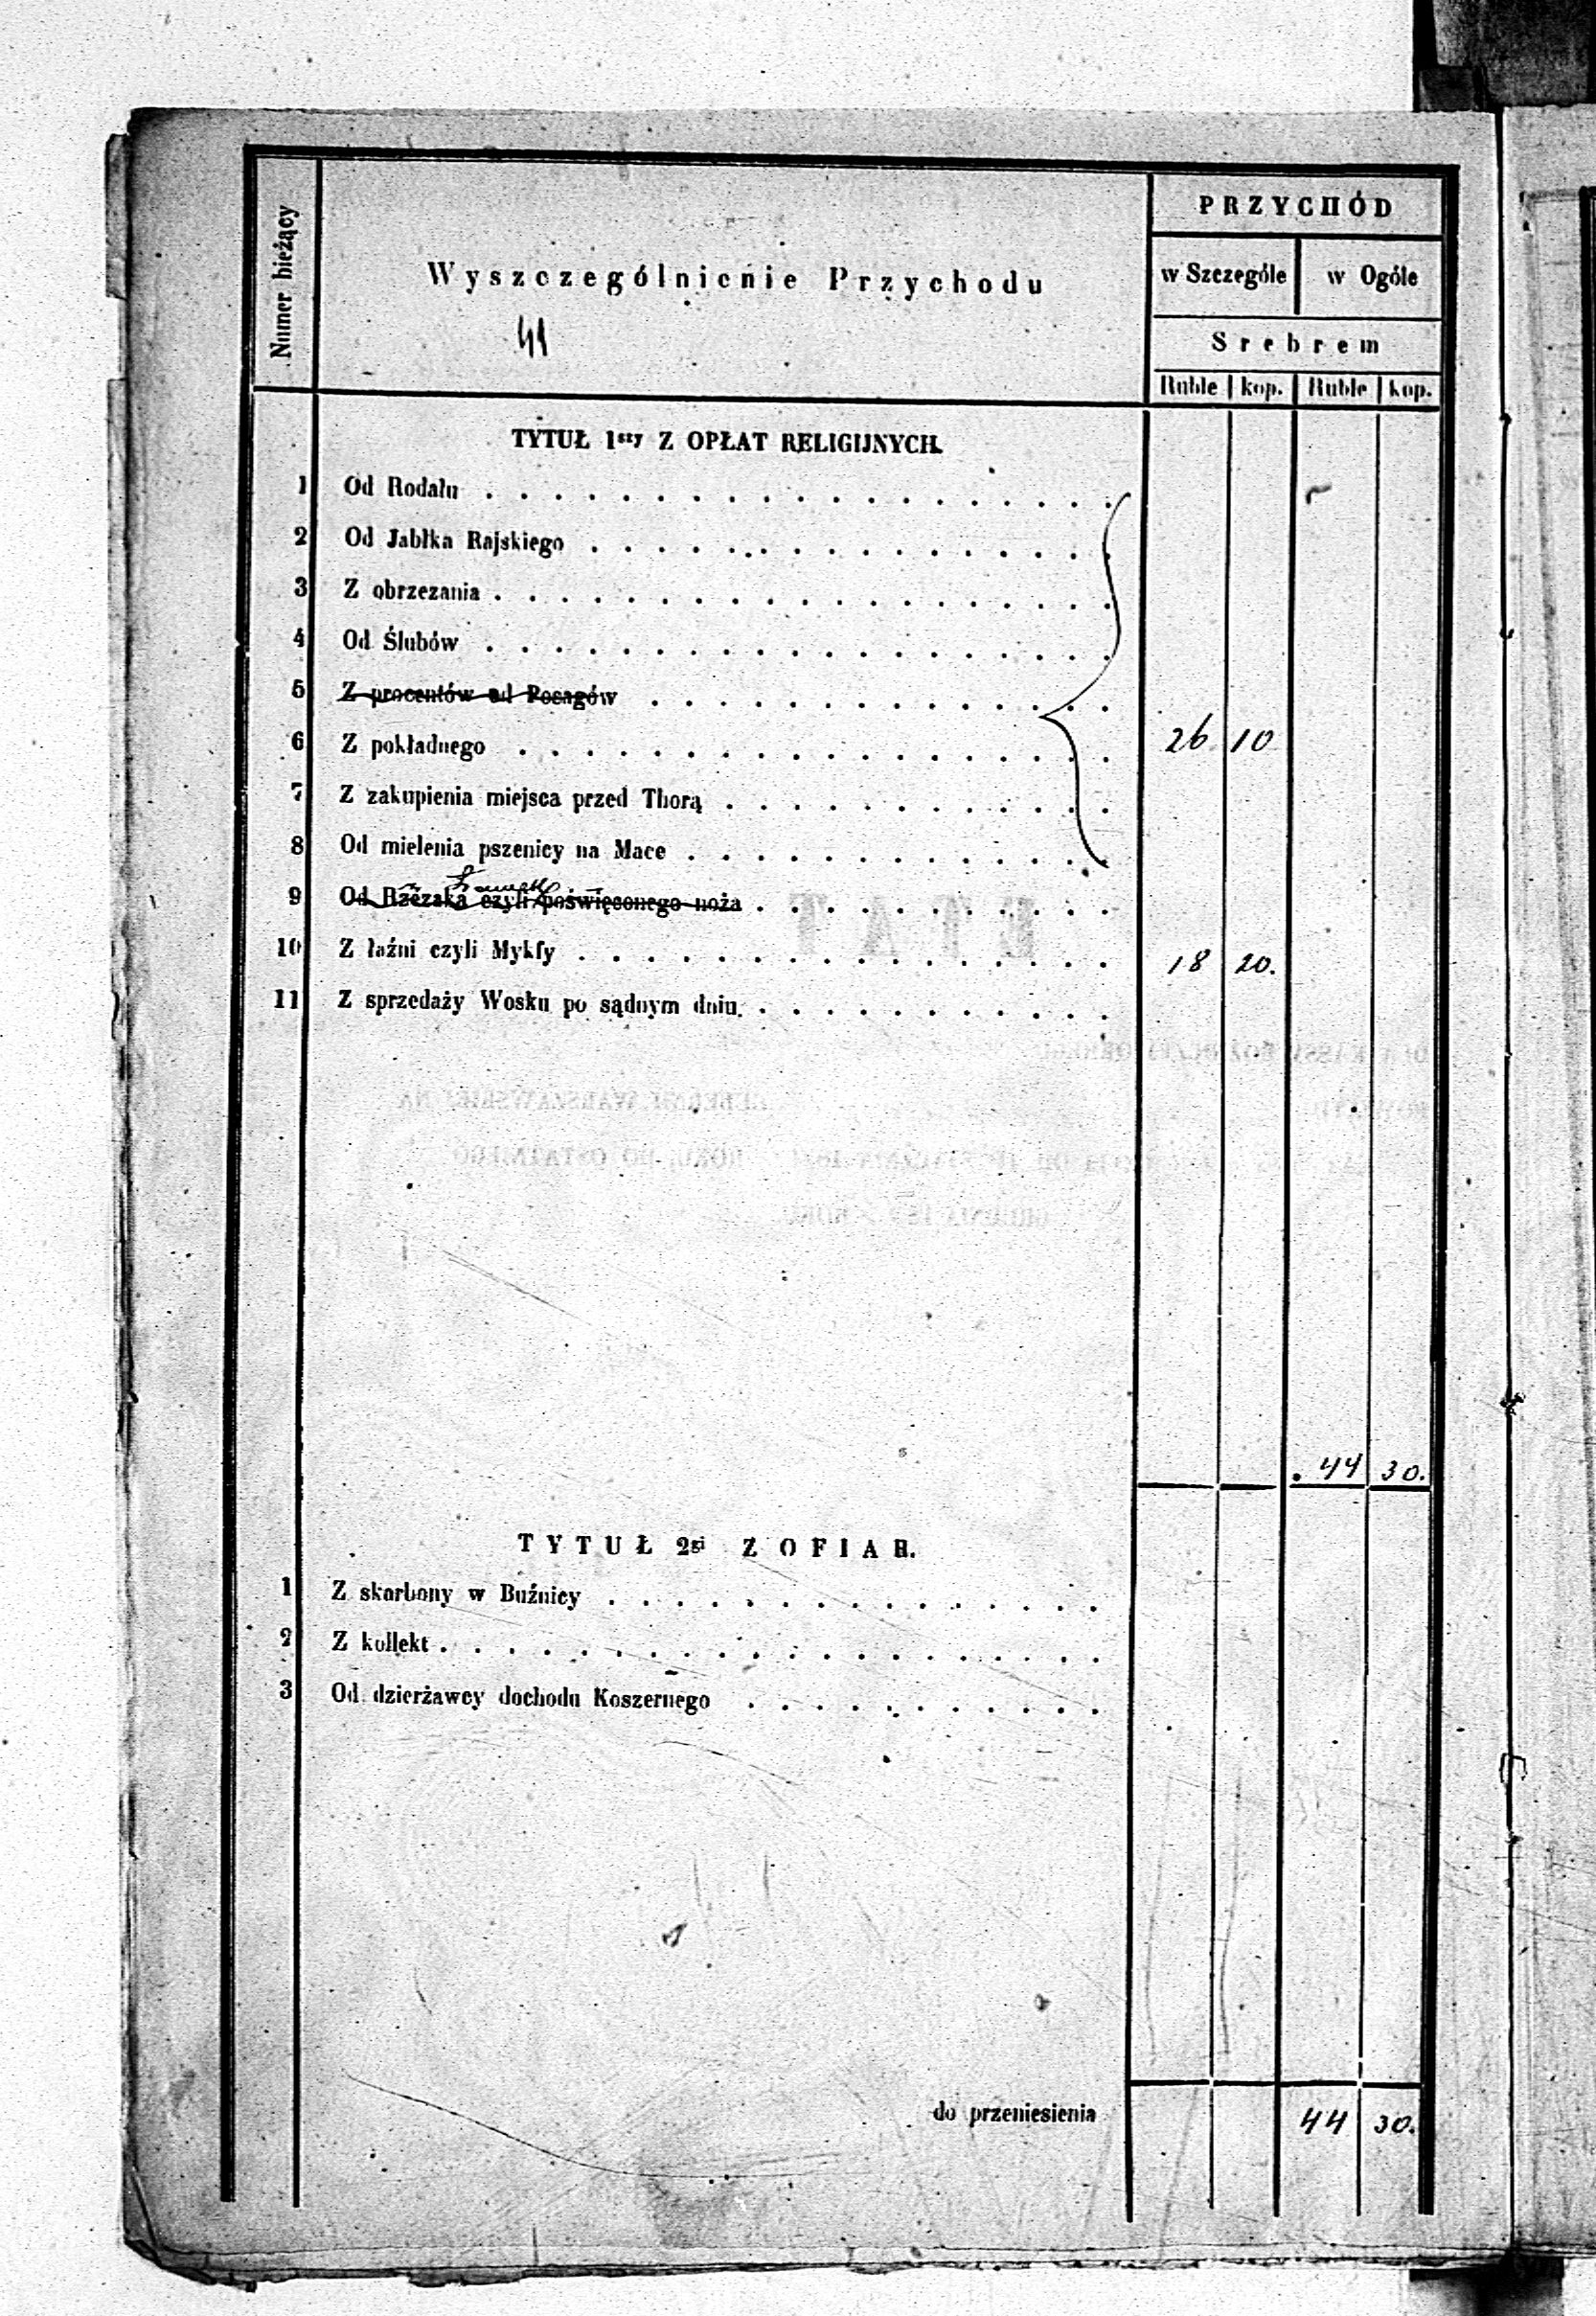 PRZYCHÓD
Numer bieżący
Wyszczególnienie Przychodu
w Szczególe w Ogóle
Srebrem
Ruble kop. Ruble kop.
TYTUŁ 1szy Z OPŁAT RELIGIJNYCH.
1 Od Rodału
2 Od Jabłka Rajskiego
3 Z obrzezania
4 Od Ślubów
5 Z procentów od Posagów
6 Z pokładnego 26 10
7 Z zakupienia miejsca przed Thorą
8 Od mielenia pszenicy na Mace
9 Od Rzezaka czyli poświęconego noża
10 Z łaźni czyli Mykfy 18 20.
11 Z sprzedaży Wosku po sądnym dniu.
44 30.
TYTUŁ 2gi Z OFIAR.
1 Z skarbony w Buźnicy
2 Z kollekt
3 Od dzierżawcy dochodu Koszernego
do przeniesienia 44 30.